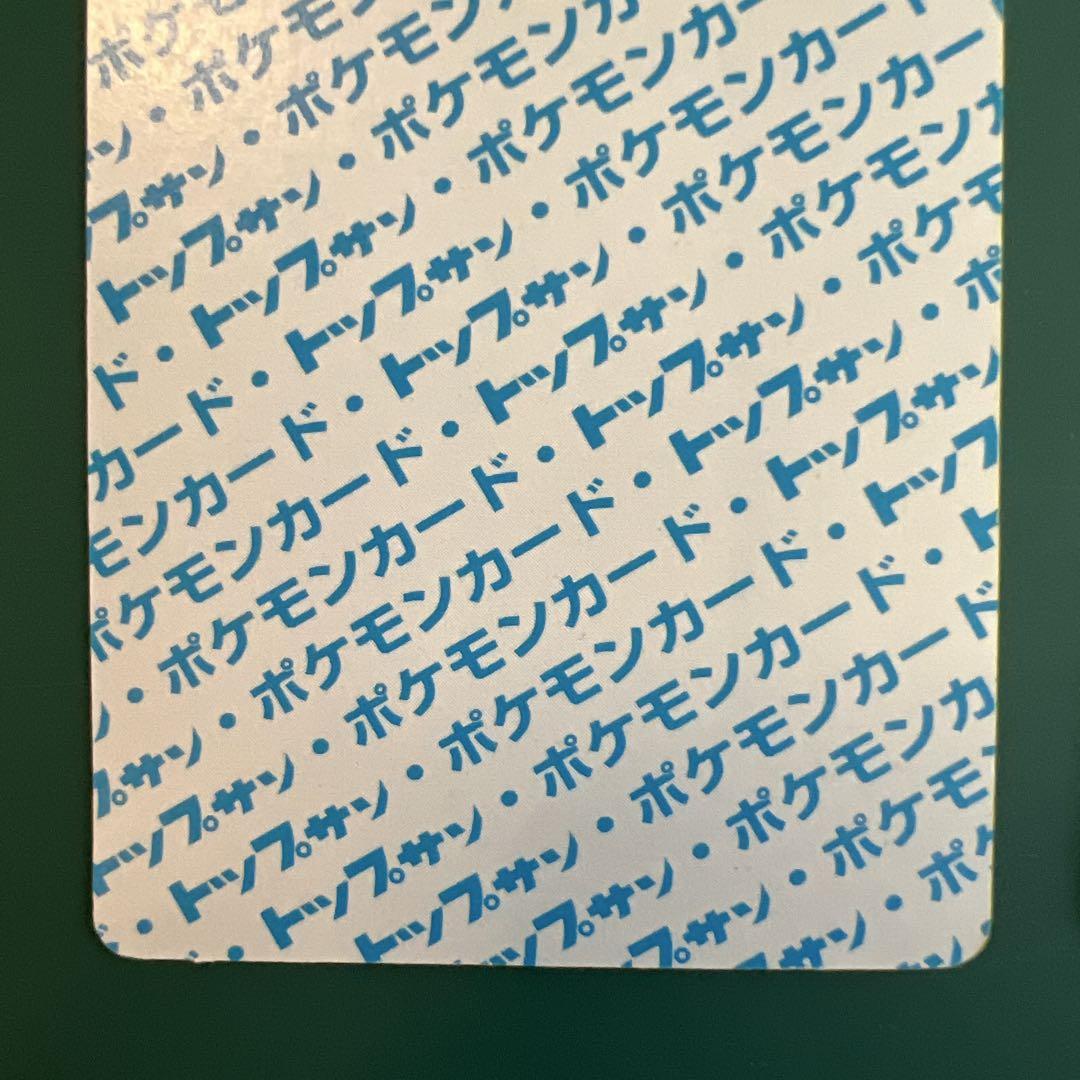 ポケモ
・ポケモ
プサン・ポケモン
トップサン・ポケモンカ
ド・トップサン・ポケモンカード
カード・トップサン・ポケモンカード
モンカード・トップサン・ポケモンカー
ポケモンカード・トップサン・ポケモン
・ポケモンカード・トップサン・ポケモ
プサン・ポケモンカード・トップサン・ポ
トップサン・ポケモンカード・トップサン
・トップサン・ポケモンカード・トップ
・トップサン・ポケモンカード・ト
トップサン・ポケモンカード
プサン・ポケモンカ
プサン・ポケモ
サン・ポケ